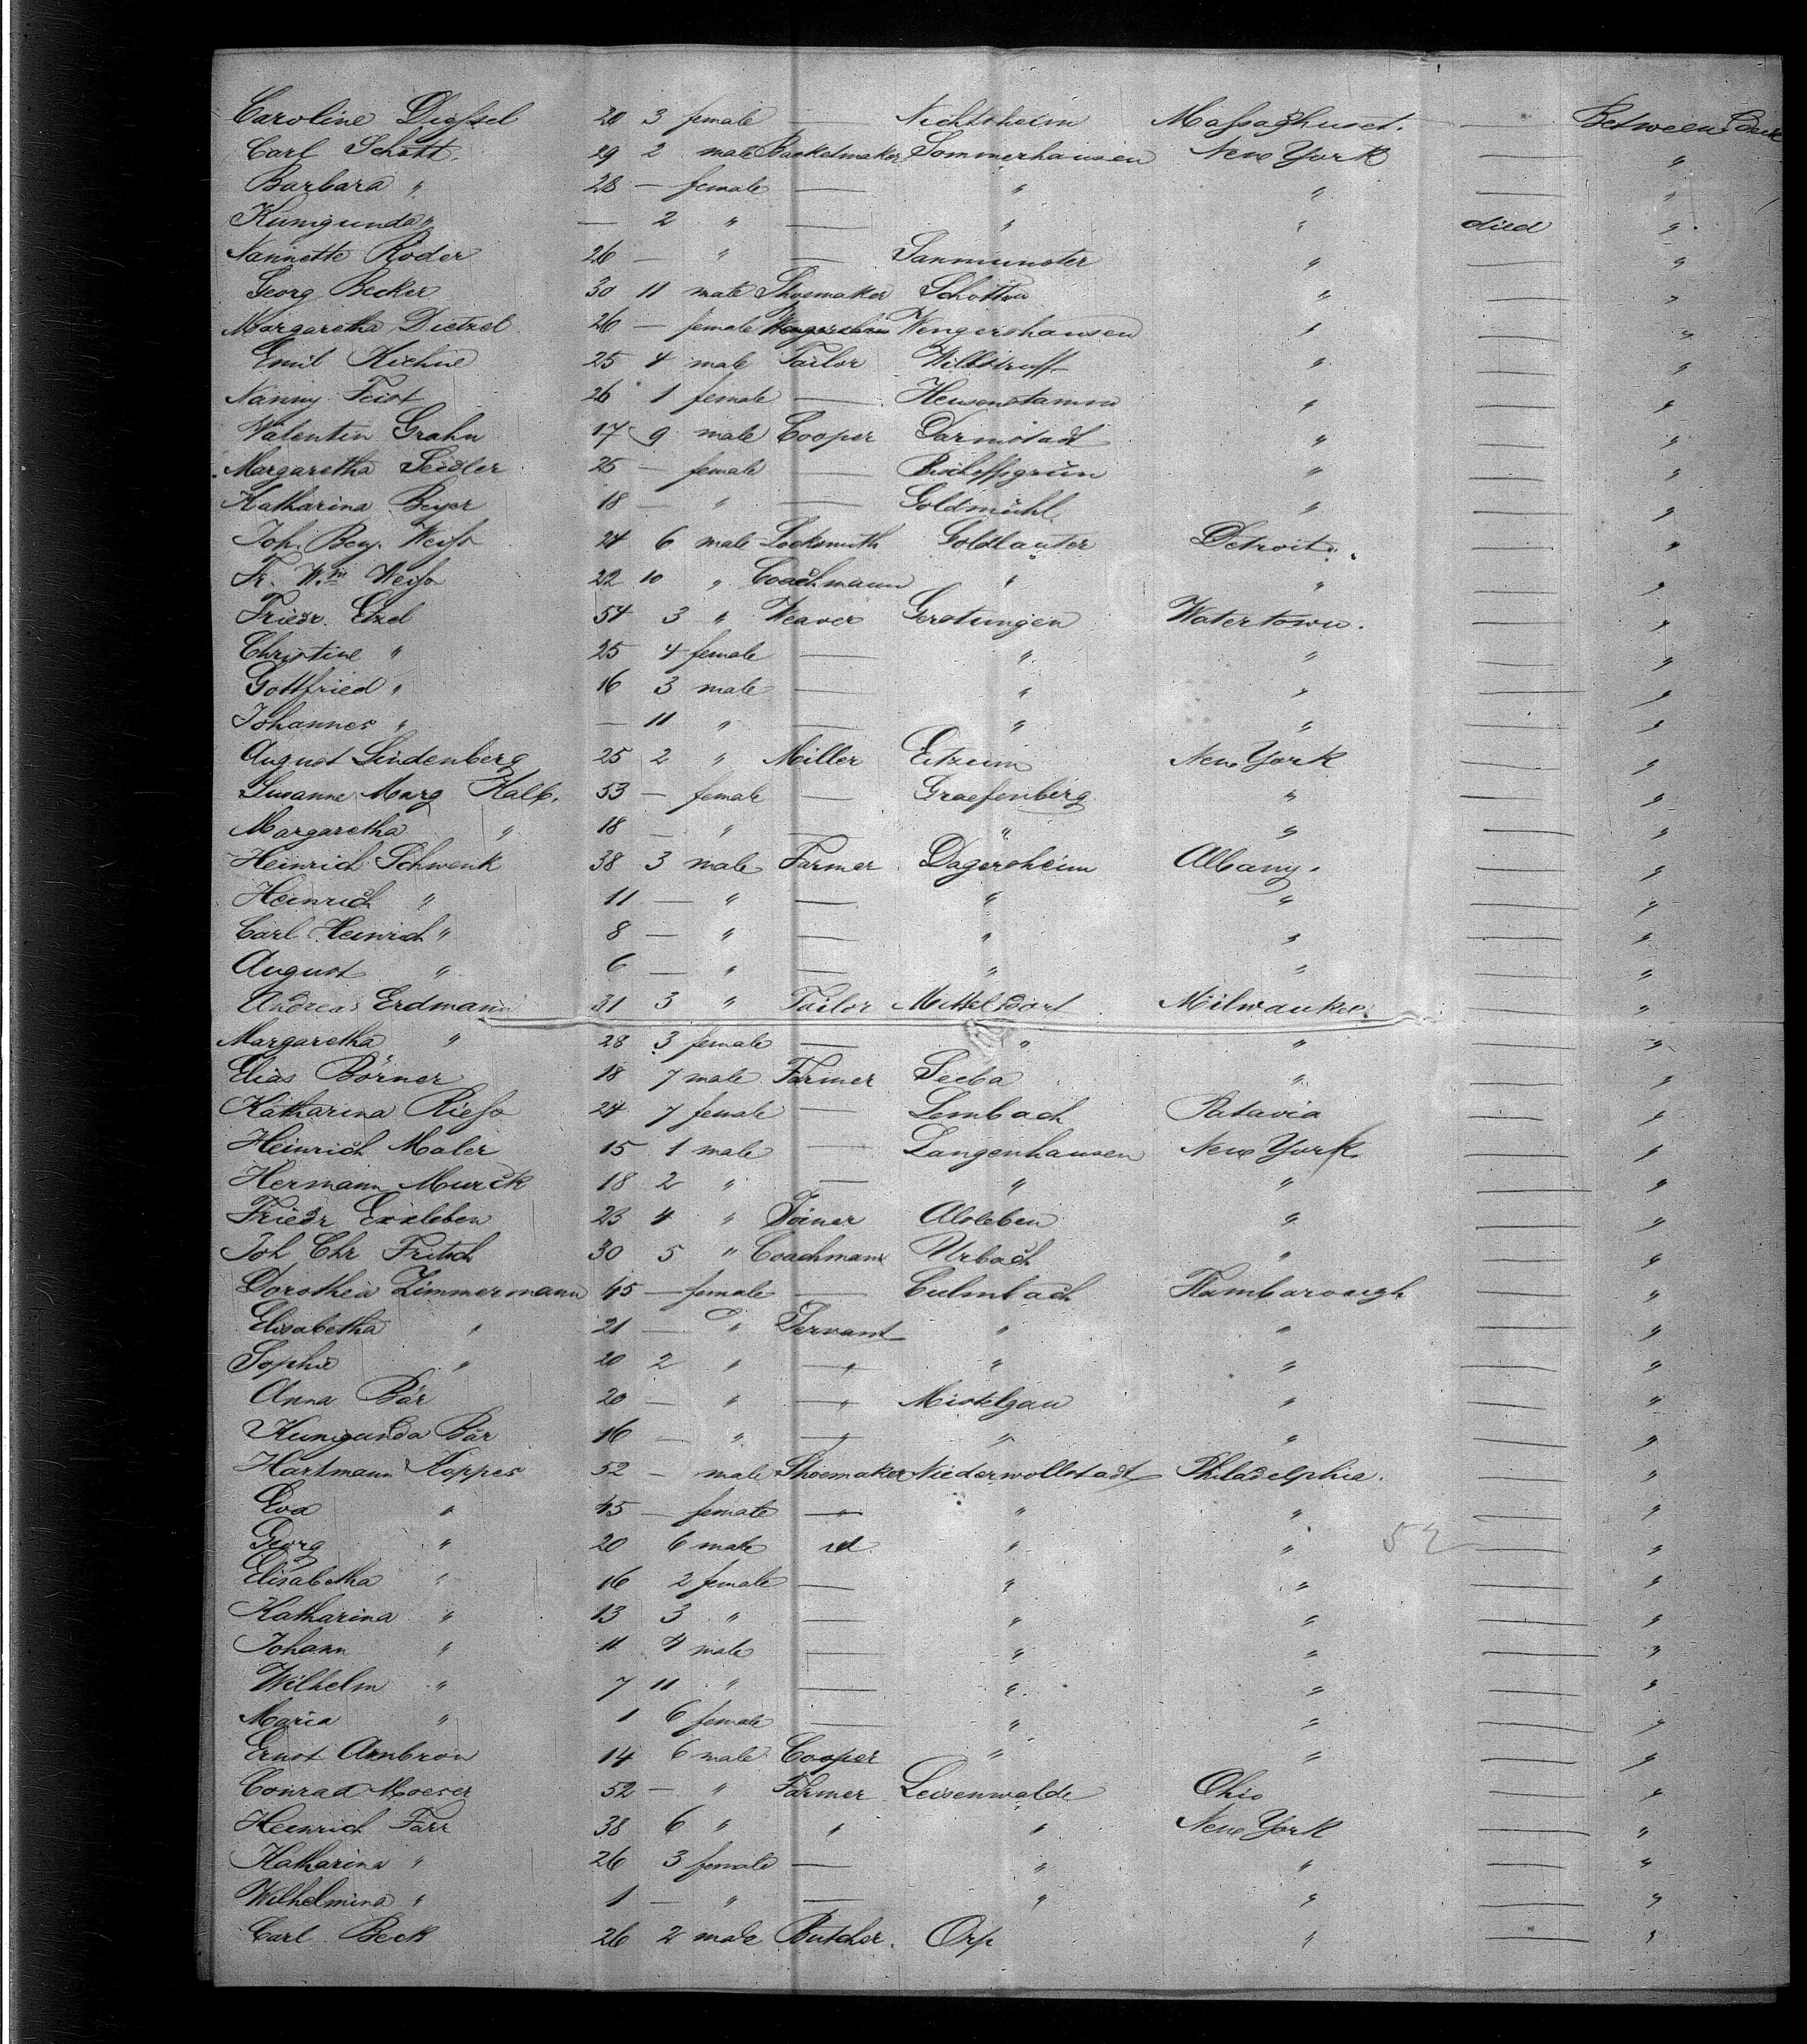 Caroline Diessel 20 3 female — Nichtsheim Massaghuset. — Between Deck
Carl Schott. 29 2 male Basketmaker Sommerhausen New York — "
Barbara " 28 — female — " " — "
Kunigunda " — 2 " — " " died "
Nannette Röder 26 — " — Sanmunster " — "
Georg Becker 30 11 male Shoemaker Schotten " — "
Margaretha Dietzel 26 — female Wengershausen " — "
Emil Kiehne 25 4 male Tailor Willstruff " — "
Nanny Feist 26 1 female — Heusenstamm " — "
Valentin Grahn 17 9 male Cooper Darmstadt " — "
Margaretha Seidler 25 — female — Bischoffsgrün " — "
Katharina Beyer 18 — " — Goldmühl " — "
Joh. Benj. Weiss 24 6 male Locksmith Goldlauter Detroit. — "
Fr. Wm Weiss 22 10 " Coachmann " " — "
Friedr. Etzel 54 3 " Weaver Gerstungen Watertown. — "
Christine " 25 4 female — " " — "
Gottfried " 16 3 male — " " — "
Johannes " — 11 " — " " — "
August Lindenberg 25 2 " Miller Eitzum New York — "
Susanne Marg Kalb. 53 — female — Graefenberg " — "
Margaretha " 18 — " — " " — "
Heinrich Schwenk 38 3 male Farmer Dagersheim Albany. — "
Heinrich " 11 — " — " " — "
Carl Heinrich " 8 — " — " " — "
August " 6 — " — " " — "
Andreas Erdmann 31 3 " Tailor Mittelsdorf Milwaukee. — "
Margaretha " 28 3 female — " " — "
Elias Börner 18 7 male Farmer Seeba " — "
Katharina Riess 24 7 female — Lembach Batavia — "
Heinrich Maler 15 1 male — Langenhausen New York — "
Hermann Murck 18 2 " — " " — "
Friedr Exleben 23 4 " Joiner Alsleben " — "
Joh Chr Fritsch 30 5 " Coachmann Urbach " — "
Dorothea Zimmermann 45 — female — Culmbach Flamborough — "
Elisabetha " 21 — " Servant " " — "
Sophie " 20 2 " " " " — "
Anna Bär 20 — " " Mistelgau " — "
Kunigunda Bär 16 — " " " " — "
Hartmann Koppes 52 — male Shoemaker Niederwollstadt Philadelphia. — "
Eva " 45 — female — " " — "
Georg " 20 6 male id " " 52 — "
Elisabetha " 16 2 female — " " — "
Katharina " 13 3 " — " " — "
Johann " 11 4 male — " " — "
Wilhelm " 7 11 " — " " — "
Maria " 1 6 female — " " — "
Ernst Ambron 14 6 male Cooper " " — "
Conrad Moeser 52 — " Farmer Leisenwalde Ohio — "
Heinrich Farr 38 6 " " " New York — "
Katharina " 26 3 female — " " — "
Wilhelmina " 1 — " — " " — "
Carl Beck 26 2 male Butcher. Orp " — "